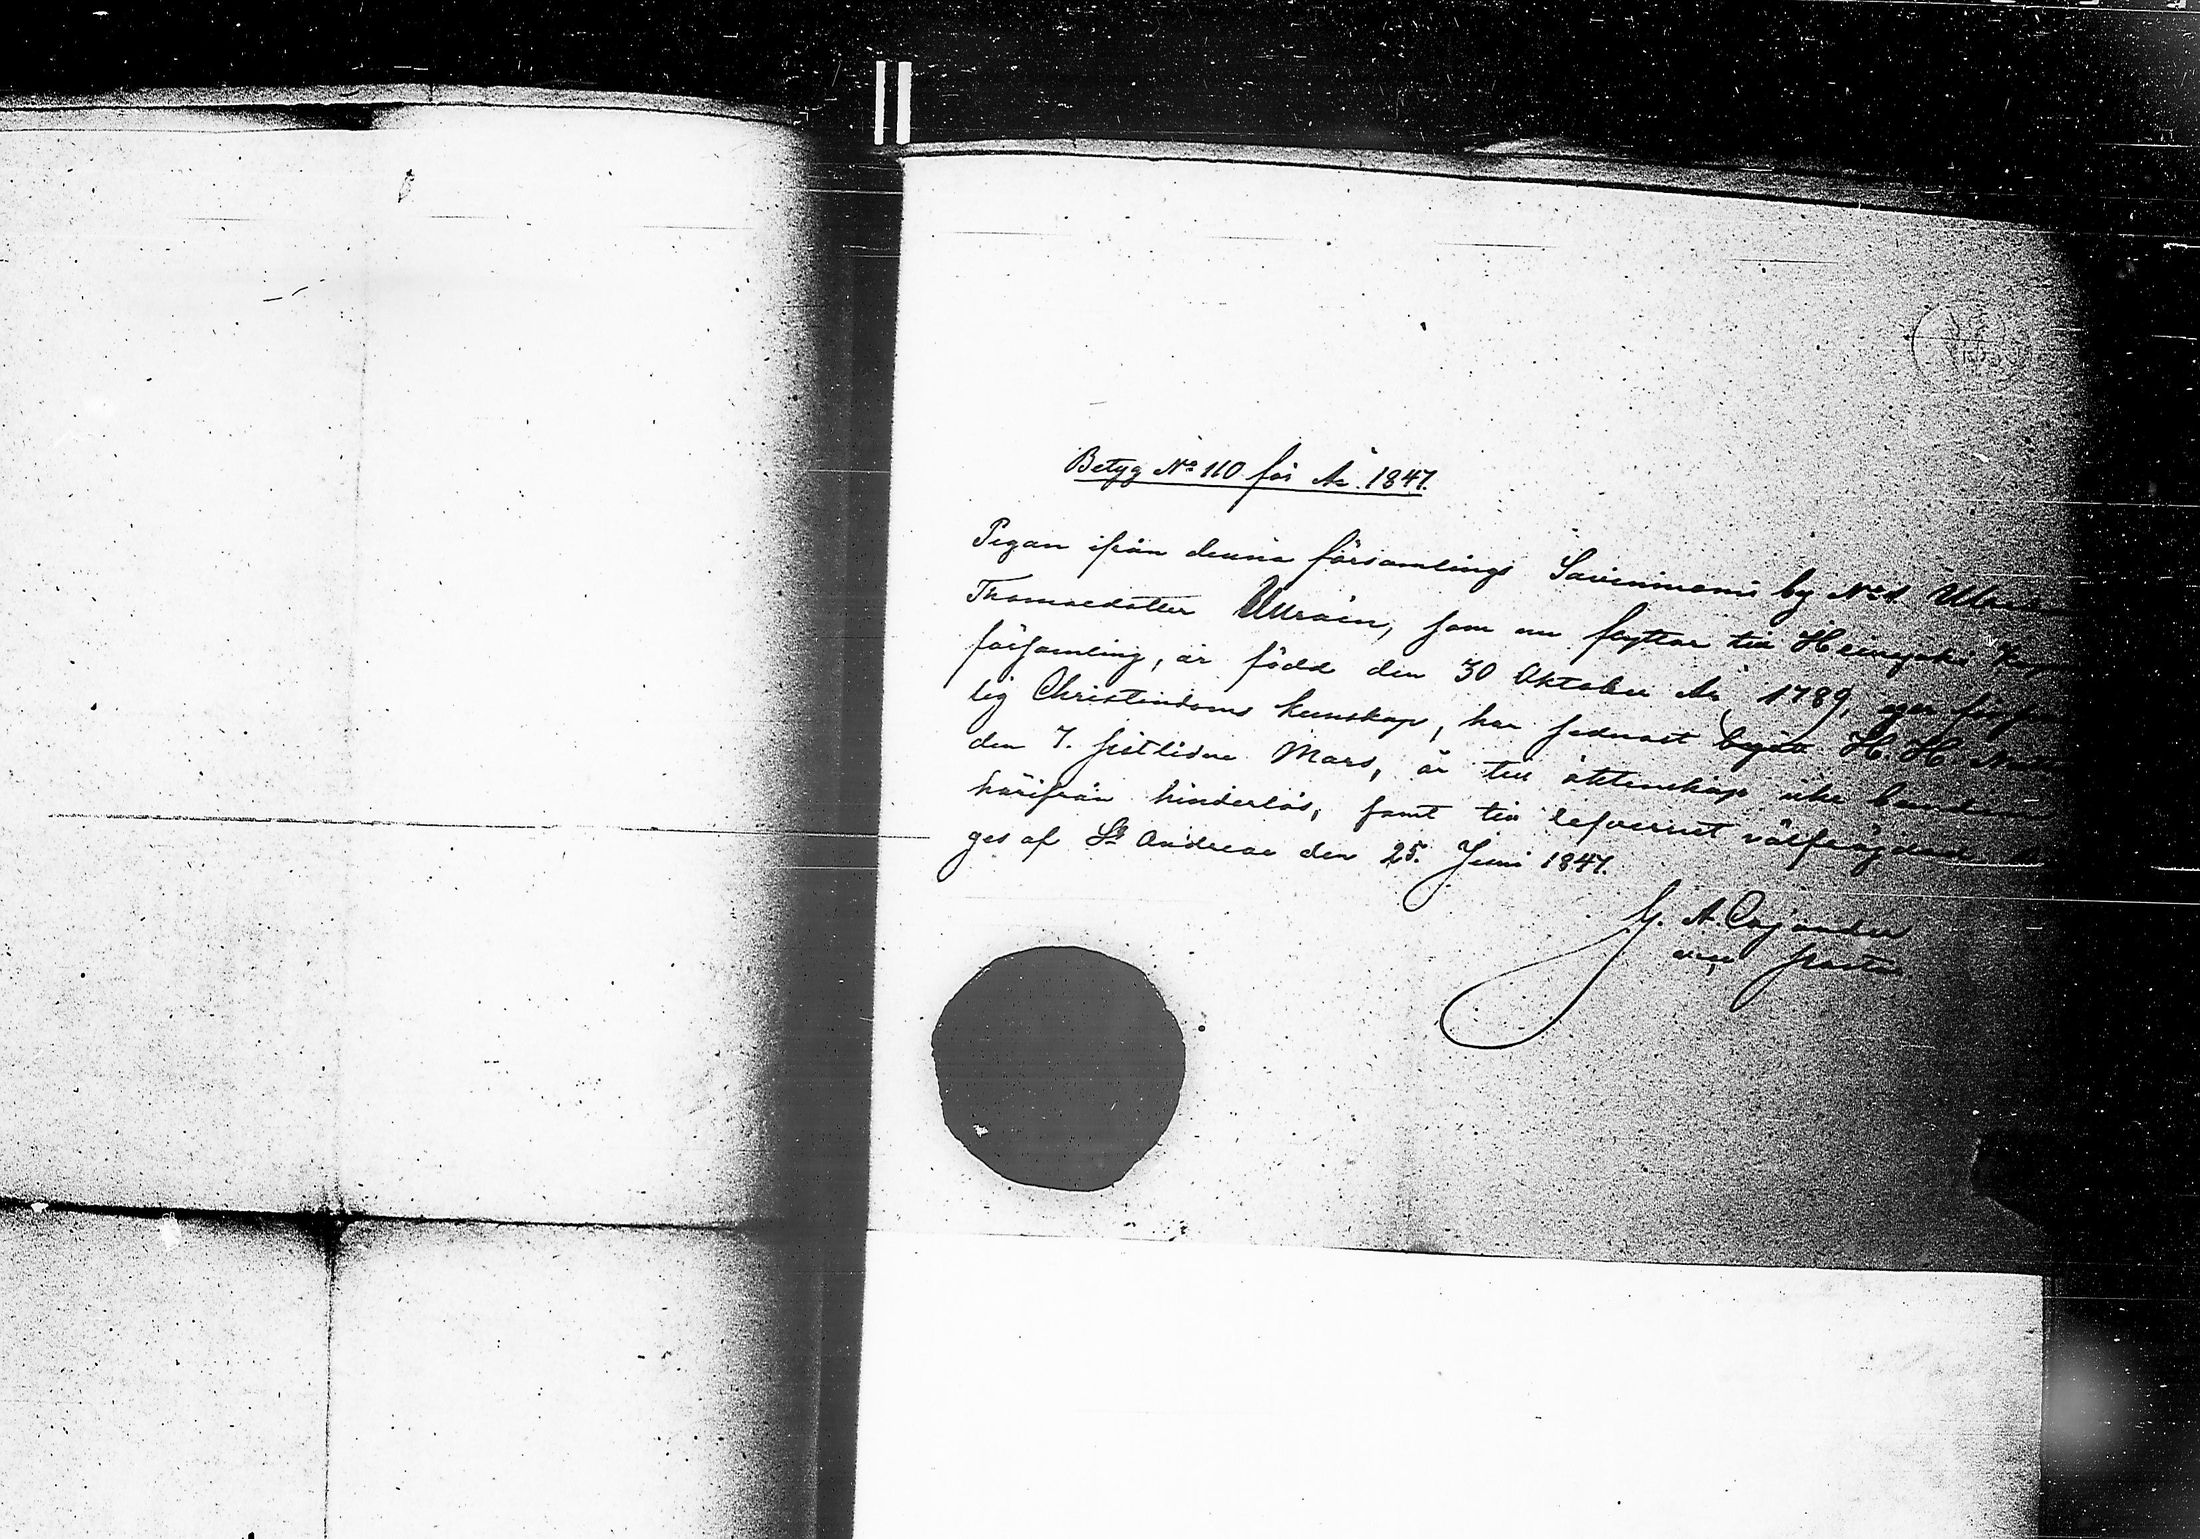 Betyg No 110 för År 1847.
Pigan ifrån denna församlings Savinniemi by No 1
Thomasdotter Ukrain, som nu flyttar till Heinejoki
församling, är född den 30 Oktober År 1789, eger förfar
lig Christendoms kunskap, har sednast begått H. H.
den 7. sistlidne Mars, är till äktenskap icke bunden
härifrån hinderlös, samt till lefvernet välfrägdad
ges af St Andreae den 25. Juni 1847.
G. A. Cajander
vice pastor